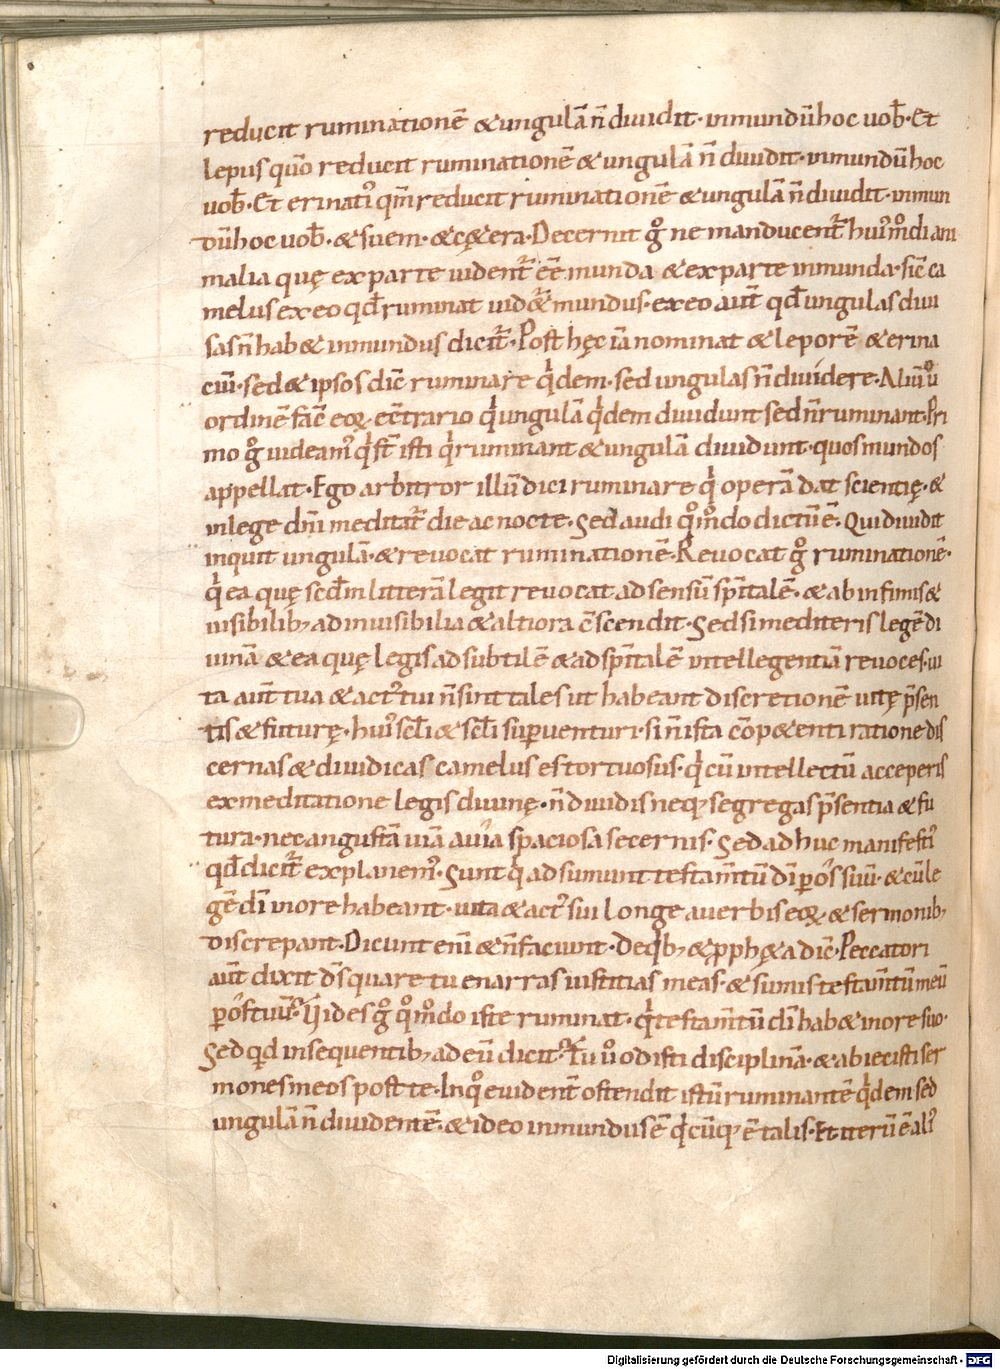 reducit ruminationē &ungulā n̄ diuidit· inmundū hoc uob̄· Et
lepus quō reducit ruminationē & ungulā n̄ diuidit· inmundū hoc
uob̄· Et erinatꝰ qm̄ reducit ruminationē & ungulā n̄ diuidit· inmun
dū hoc uob̄· & suem· & cę&era· Decernit gͦ ne manducent̄ huiꝰmͦdi ani
malia quę ex parte uident̄ ēē munda & ex parte inmunda· sic̄ ca
melus ex eo qd̄ ruminat uid&̄ mundus· ex eo aut̄ qd̄ ungulas diui
sas n̄ hab& inmundus dicit̄· Post hęc iā nominat & leporē & erina
ciū· sed & ipsos dic̄ ruminare qͥdem· sed ungulas n̄ diuidere· Aliū uͦ
ordinē fac̄ eoꝝ· ec̄trario qͥ ungulā qͥdem diuidunt sed n̄ ruminant· Pri
mo gͦ uideamꝰ qͥ st̄ isti qͥ ruminant & ungulā diuidunt· quos mundos
appellat· Ego arbitror illū dici ruminare qͥ operā dat scientię· &
in lege dn̄i meditat̄ die ac nocte· Sed audi qͦmͦdo dictū ē· Qui diuidit
inquit ungulā· & reuocat ruminationē· Reuocat gͦ ruminationē·
qͥ ea quę scd̄m litterā legit reuocat ad sensū sp̄italē· & ab infimis &
uisibilibꝫ ad inuisibilia & altiora c̄scendit· Sed si mediteris legē di
uinā & ea quę legis ad subtilē & ad sp̄italē intellegentiā reuoces· ui
ta aut̄ tua & actꝰ tui n̄ sint tales ut habeant discretionē uitę p̄sen
tis & futurę· huiꝰ scl̄i & scl̄i suꝑuenturi· si n̄ ista cōp&enti ratione dis
cernas & diuidicas camelus es tortuosus· qͥ cū intellectū acceperis
ex meditatione legis diuinę· n̄ diuidis neqꝫ segregas p̄sentia & fu
tura· nec angustā uiā a uia spaciosa secernis· Sed adhuc manifestiꝰ
qd̄ dicit̄ explanemꝰ· Sunt qͥ adsumunt testam̄tū dī ꝑ os suū· & cū le
gē dī in ore habeant· uita & actꝰ sui longe a uerbis eoꝝ· & sermonibꝫ
discrepant· Dicunt enī & n̄ faciunt· De qͥbꝫ & ꝓph&a dic̄· Peccatori
aut̄ dixit ds̄ quare tu enarras iustitias meas· & sumis testam̄tū meū
ꝑ os tuū· Uides gͦ qͦmͦdo iste ruminat· qͥ testam̄tū dī hab& in ore suo·
Sed qd in sequentibꝫ ad eū dicit̄· Tu uͦ odisti disciplinā· & abiecisti ser
mones meos post te· In qͦ euident̄ ostendit istū ruminantē qͥdem sed
ungulā n̄ diuidentē· & ideo inmundus ē qͥcūqꝫ ē talis· Et iterū ē aliꝰ
Digitalisierung gefördert durch die Deutsche Forschungsgemeinschaft - DFG